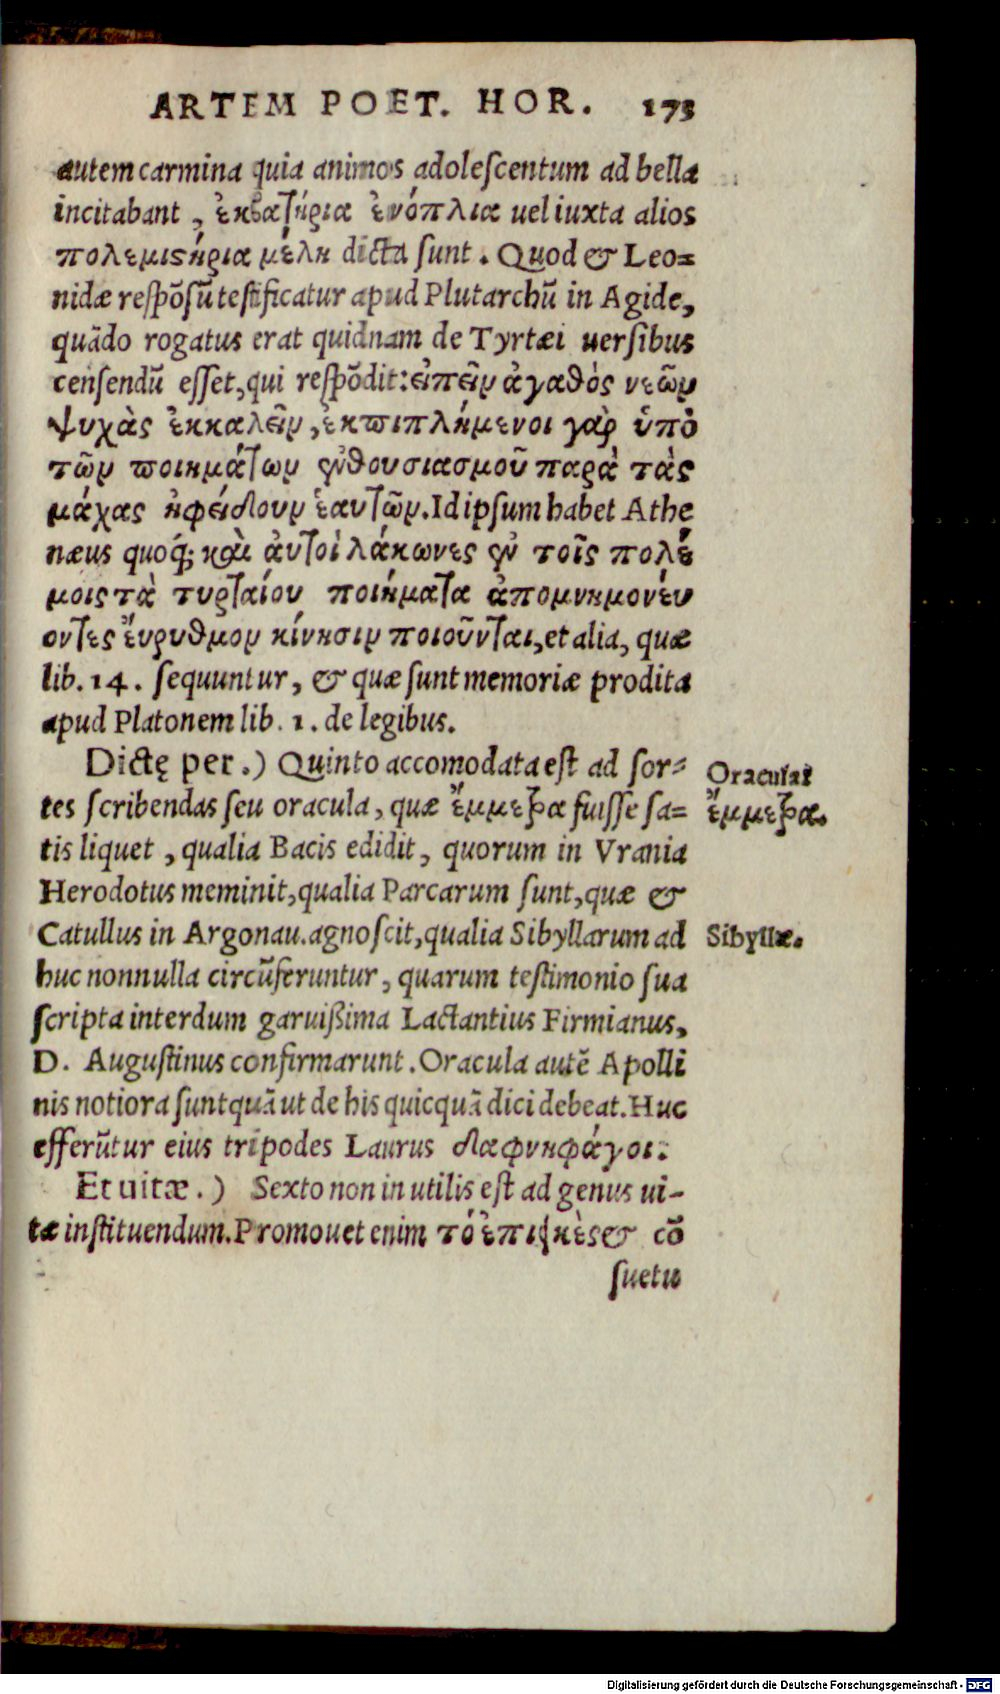 ARTEM POET. HOR. 173
autem carmina quia animos adolescentum ad bella
incitabant, ἐκβατήρια ἐνόπλια uel iuxta alios
πολεμιϛήρια μέλη dicta sunt. Quod & Leo=
nidæ respõsũ testificatur apud Plutarchũ in Agide,
quãdo rogatus erat quidnam de Tyrtæi uersibus
censendũ esset, qui respõdit: εἰπεῖν ἀγαθὸς νεῶν
ψυχὰς ἐκκαλεῖν, ἐκπιπλήμενοι γὰρ ὑπὸ
τῶν ποιημάτων ἐνθουσιασμοῦ παρὰ τὰς
μάχας ἠφείδουν ἑαυτῶν. Id ipsum habet Athe
næus quoq́;. καὶ ἀυτοὶ λάκωνες ἐν τοῖς πολέ
μοις τὰ τυρταίου ποιήματα ἀπομνημονέυ
οντες ἔυρυθμον κίνησιν ποιοῦνται, et alia, quæ
lib. 14. sequuntur, & quæ sunt memoriæ prodita
apud Platonem lib. 1. de legibus.
Dictę per.) Quinto accomodata est ad sor=
tes scribendas seu oracula, quæ ἔμμετρα fuisse sa=
tis liquet, qualia Bacis edidit, quorum in Vrania
Herodotus meminit, qualia Parcarum sunt, quæ &
Catullus in Argonau. agnoscit, qualia Sibyllarum ad
huc nonnulla circũferuntur, quarum testimonio sua
scripta interdum garuißima Lactantius Firmianus,
D. Augustinus confirmarunt. Oracula autẽ Apolli
nis notiora sunt quã ut de his quicquã dici debeat. Huc
efferũtur eius tripodes Laurus δαφνηφάγοι:
Et uitæ.) Sexto non in utilis est ad genus ui-
tæ instituendum. Promouet enim τὸ ἐπιεικὲς & cõ
suetu
Oraculaι
ἔμμετρα.
Sibyllæ.
Digitalisierung gefördert durch die Deutsche Forschungsgemeinschaft - DFG